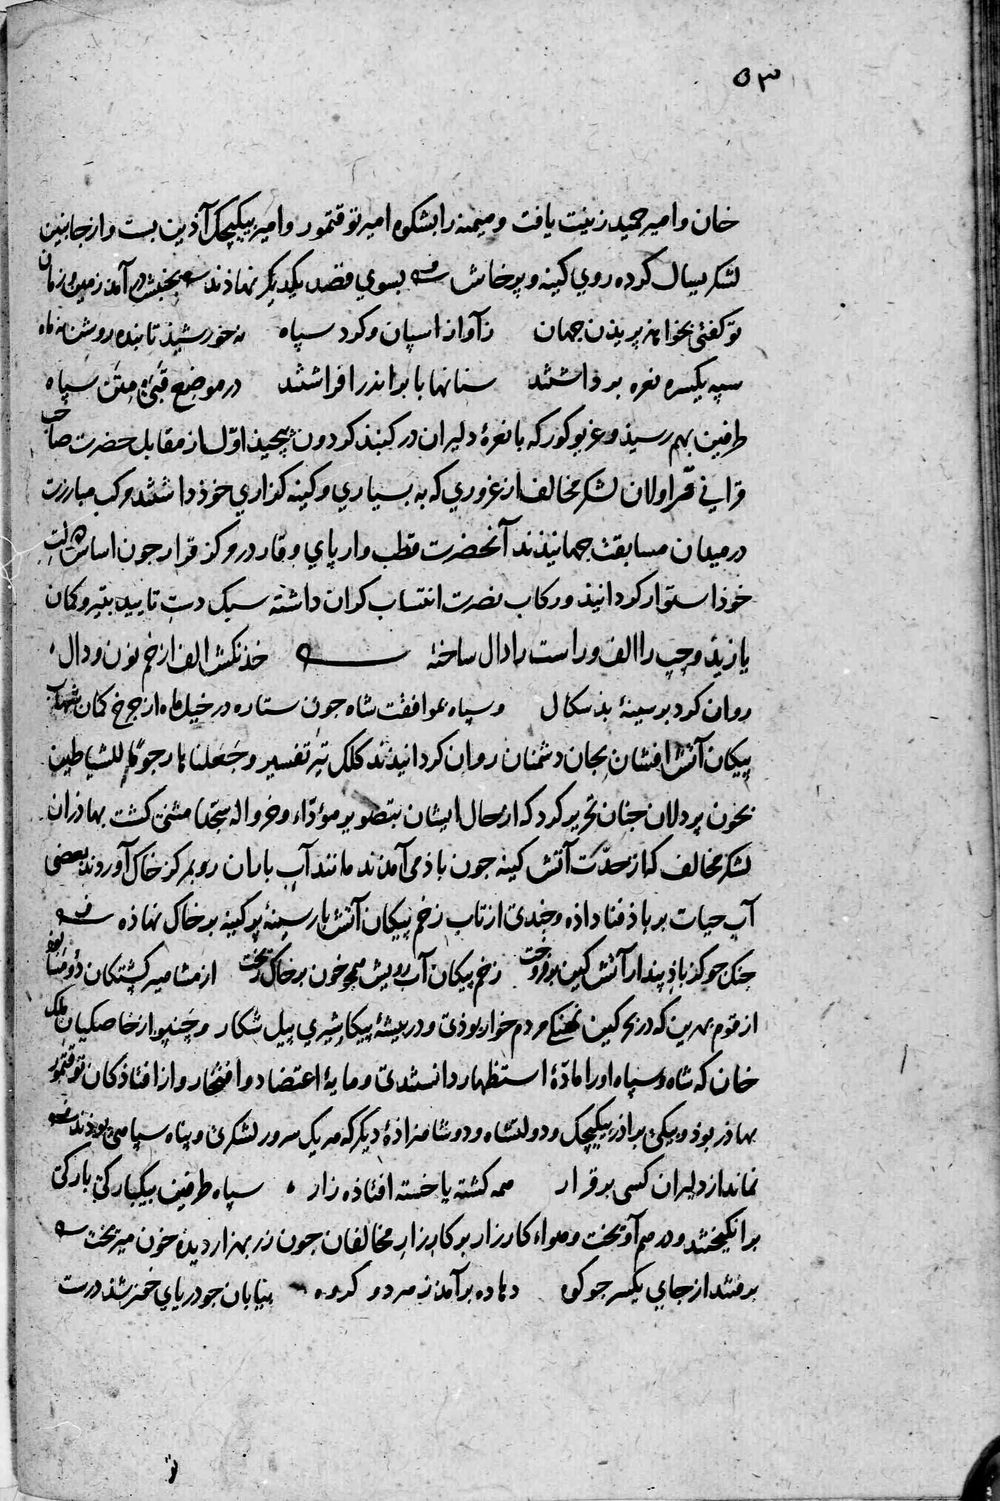 ٥٣
خان و امیر حمید زینت یافت و میمنه را بشکوه امیر توقتمور و امیر بیکیچک آذین بست و از جانبین
لشکر یسال کرده روی کینه و پرخاش بسوی قصد یکدیکر نهاذند بجنبش در آمد زمین و زمان
تو کفتی بخواهذ پریذن جهان ز آواز اسپان و کرد سپاه نه خورشیذ تابنده روشن نه ماه
سپه یکسره نعره برداشتند سنانها بابر اندر افراشتند در موضع قبی متن سپاه
طرفین بهم رسیذ و غریو کورکه با نعرۀ دلیران در کنبذ کردون پیچیذ اول از مقابل حضرت صاحب
قرانی قراولان لشکر مخالف از غروری که به بسیاری و کینه کزاری خوذ داشتند مرکب مبارزت
در میدان مسابقت جهانیذند آنحضرت قطب وار پای وقار در مرکز قرار جون اساس دولت
خوذ استوار کردانیذ و رکاب نصرت انتساب کران داشته سبک دست تایید بتیر و کمان
یازید و چپ را الف و راست را دال ساخته خدنکش الف از خم نون و دال
روان کرد بر سینۀ بدسکال و سپاه بموافقت شاه جون ستاره در خیل ماه از چرخ کمان شهاب
پیکان آتش افشان بجان دشمنان روان کردانیدند کلک تیر تفسیر وجعلناها رجوما للشیاطین
بخون پردلان جنان تحریر کرد که از حال ایشان بتصویر مؤداء وخروا له سجدا مشیی کشت بهاذران
لشکر مخالف که از حدت آتش کینه جون باذ می آمدند مانند آب باران رو بمرکز خاک آوردند بعضی
آب حیات بر باذ فنا داذه و خدی از تاب زخم پیکان آتش بار سینۀ پر کینه بر خاک نهاذه
جنک جو کز باذ پندار آتش کین بر فروخت زخم پیکان آب رویش همجو خون بر خاک ریخت از مشاهیر کشتکان
از قوم بهرین که در بحر کین نهنکی مردم خوار بوذی و در بیشۀ پیکار شیری پیل شکار و جنپو از خاصکیان ملک
خان که شاه و سپاه او را مادۀ استظهار دانستندی و مایۀ اعتضاد و افتخار و از افتاذکان توقتمور
بهاذر بوذ و بیکی براذر بیکیچک و دولتشاه و دو شاهزادۀ دیکر که هر یک سرور لشکری و پناه سپاهی بوذند
نماند از دلیران کسی برقرار همه کشته یا خسته افتاذه زار سپاه طرفین بیکبارکی بارکی
برانکیختند و در هم آویخت و هواء کارزار بر کار زار مخالفان جون نر بهزار دیده خون میریخت
برفتند از جای یکسر جو کوه دهاده برآمد ز هر دو کروه بیابان جو دریای خون شذ درست